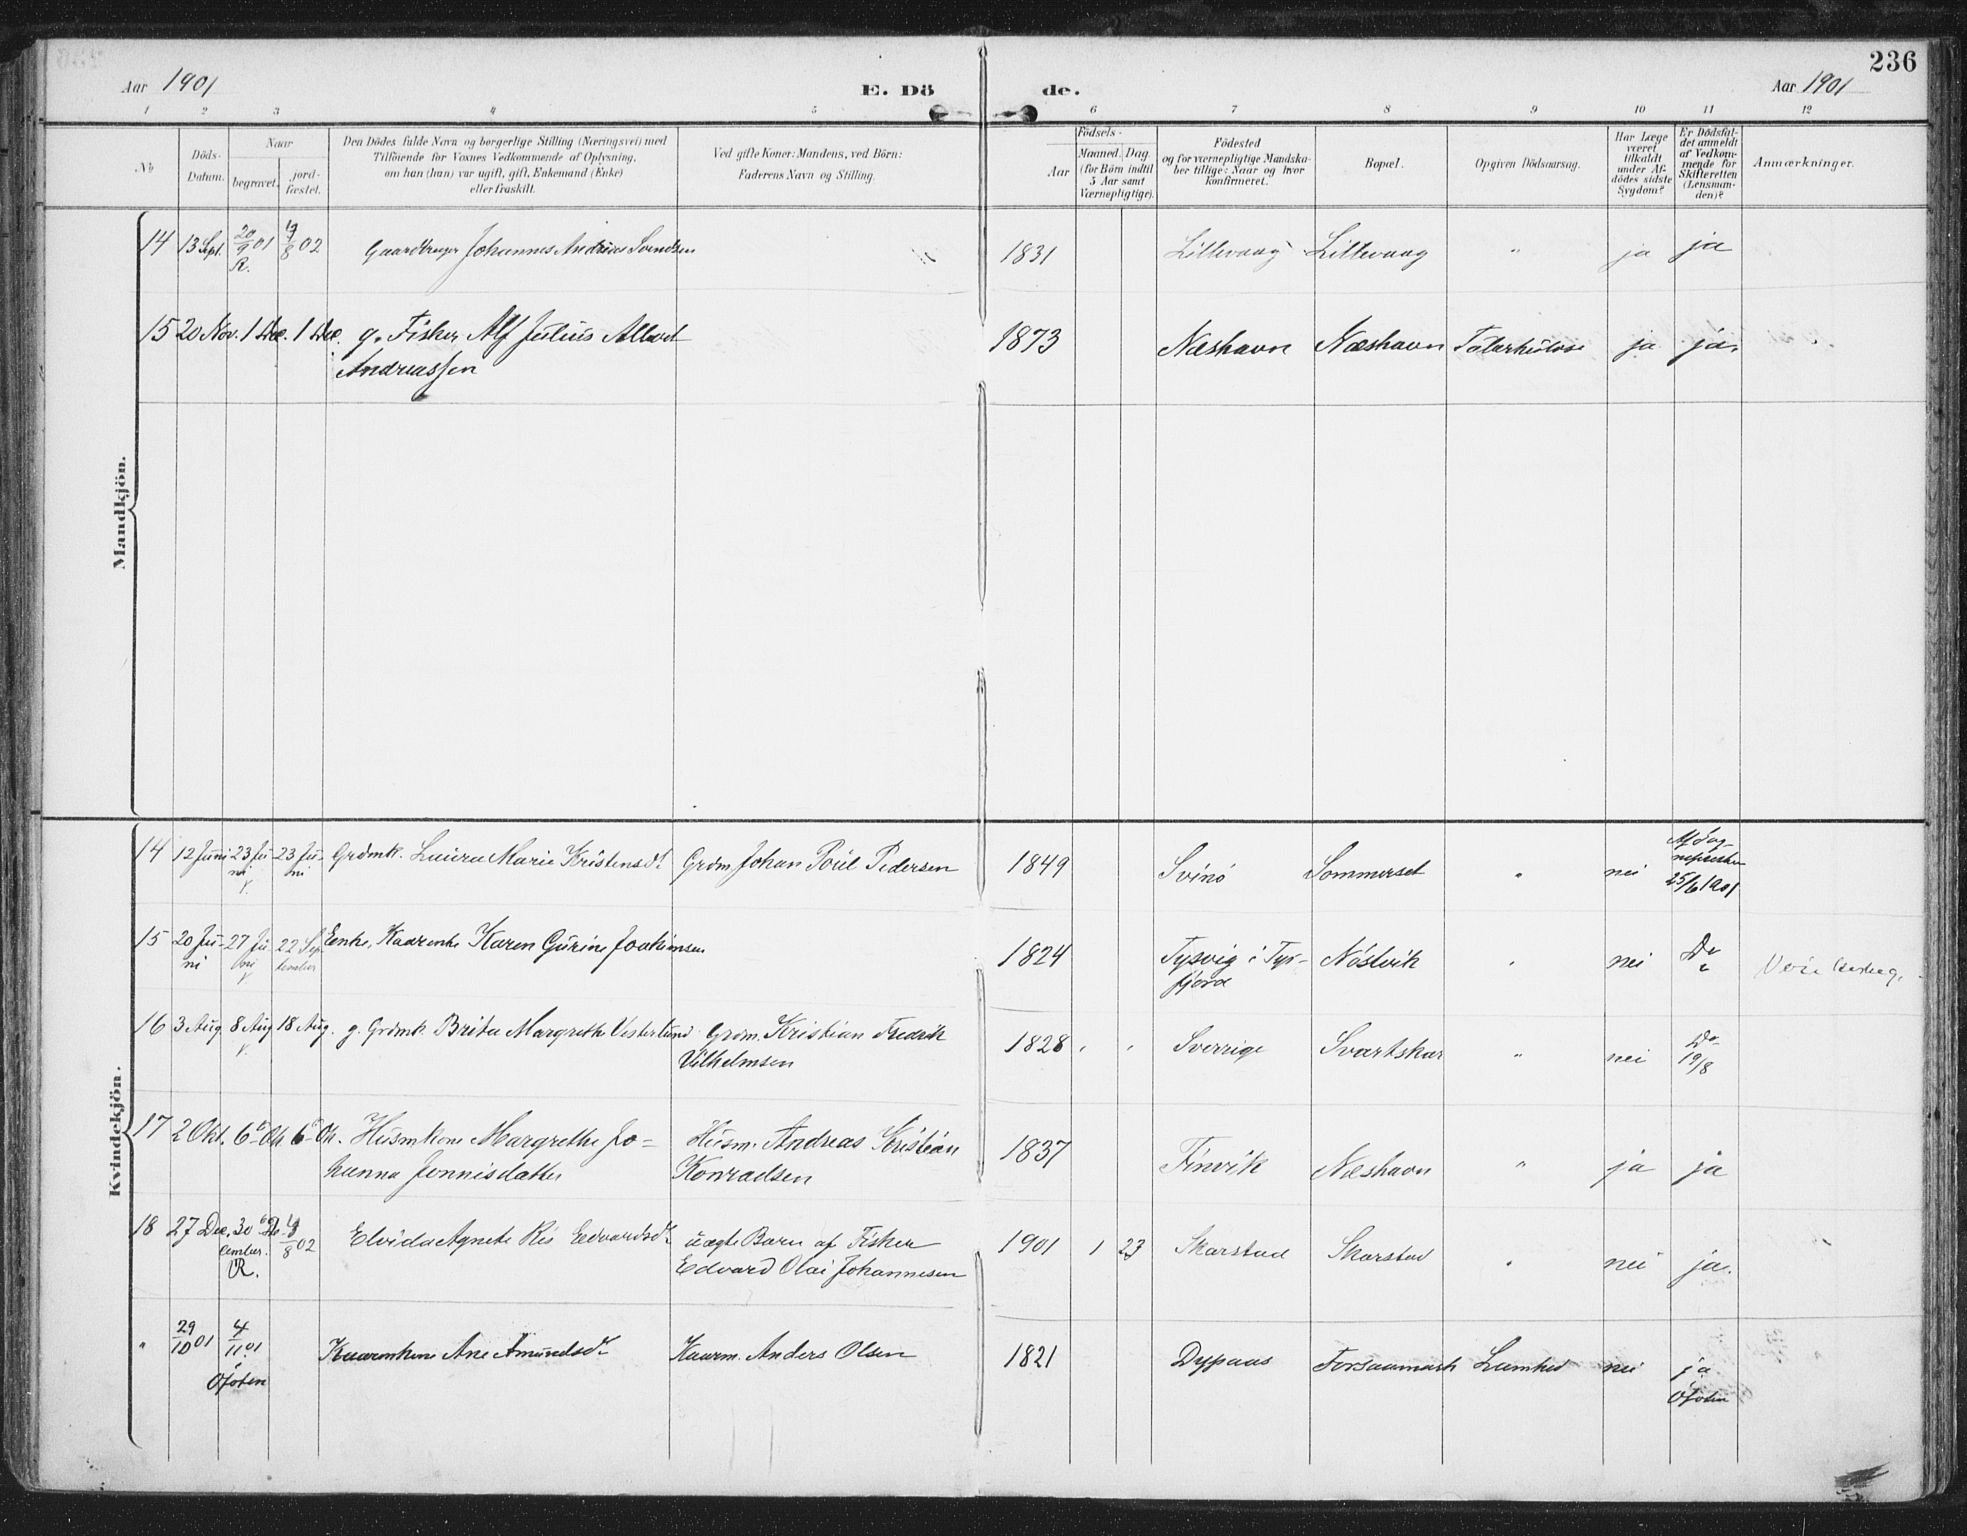 236
Aar 1901 E. Dö de. Aar 1901
1 2 3 4 5 6 7 8 9 10 11 12
No
Döds-
Datum.
Naar
begravet.
jord-
fæstet.
Den Dödes fulde Navn og borgerlige Stilling (Næringsvei) med
Tilföiende for Voxnes Vedkommende af Oplysning,
om han (hun) var ugift, gift, Enkemand (Enke)
eller fraskilt.
Ved gifte Koner: Mandens, ved Börn:
Faderens Navn og Stilling.
Födsels-
Aar
Maaned. Dag
(for Börn indtil
5 Aar samt
Værnepligtige).
Födested
og for værnepligtige Mandska-
ber tillige: Naar og hvor
konfirmeret.
Bopæl.
Opgiven Dödsaarsag.
Har Læge
været
tilkaldt
under Af-
dödes sidste
Sygdom?
Er Dödsfal-
det anmeldt
af Vedkom-
mende for
Skifteretten
(Lensman-
den)?
Anmærkninger.
Mandkjön.
14 13 Sept. 20/9 01 R. 8 02 Gaardbruger Johannes Andreas Svendsen 1831 Lillevaag Lillevaag " ja ja
15 20 Nov. 1 Dec. 1 Dec. g. Fisker Alf Julius
Andreassen 1873 Næshavn Næshavn ja ja.
Kvindekjön.
14 12 Juni 23 Ju-
ni 23 Ju-
ni Grdmk. Laura Marie Kristensdr Grdm. Johan Poul Pedersen 1849 Svinö Sommerset " nei
25/6 1901
15 20 Ju-
ni 27 Ju-
ni 22 Sep-
tember Enke, Karen Gurine Joakimsen 1824 Tysvig i Tys-
fjord Nöstvik " nei Do
16 3 Aug. 8 Aug 18 Aug. g. Grdmk. Brita Margrethe Vesterlund Grdm. Kristian Fredrik
Vilhelmsen 1828 " " Sverrige Svartskar " nei Do
19/8
17 2 Okt. 6 Ok 6 Ok. Husmkone Margrethe Jo=
hanna Jennisdatter Husm. Andreas Kristian
Konradsen 1837 Finvik Næshavn " ja ja
18 27 Dec. 30 De-
cember. R. 8 02 Elvida Agnete Edvardsdr uægte Barn af Fisker
Edvard Olai Johannesen 1901 1 23 Skarstad Skarstad " nei ja.
" 29/10 01 4/11 01
Ofoten Ane Amundsdr Kaarm. Anders Olsen 1821 Dypaas nei ja
Ofoten